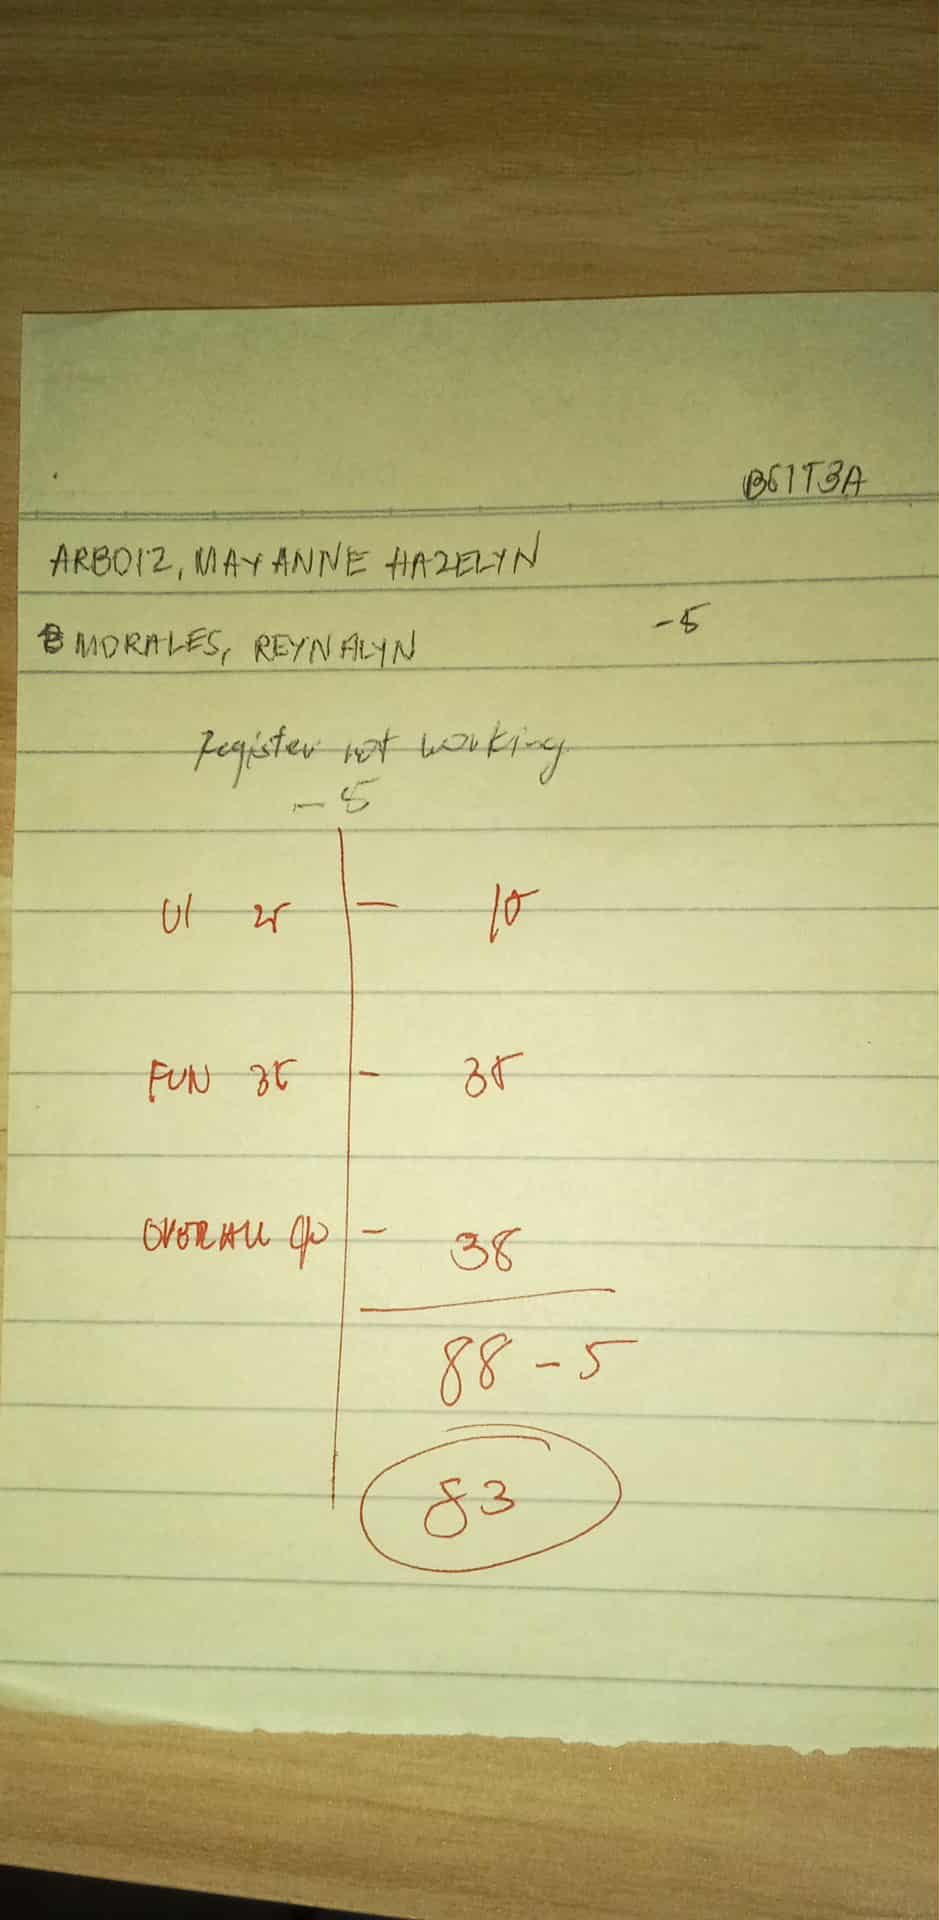 BSIT3A
ARBOIZ, MAY ANNE HAZELYN
MORALES, REYNALYN -5
Register not working
-5
UI 25 - 15
FUN 35 - 35
OVERALL 40 - 38
88 - 5
83